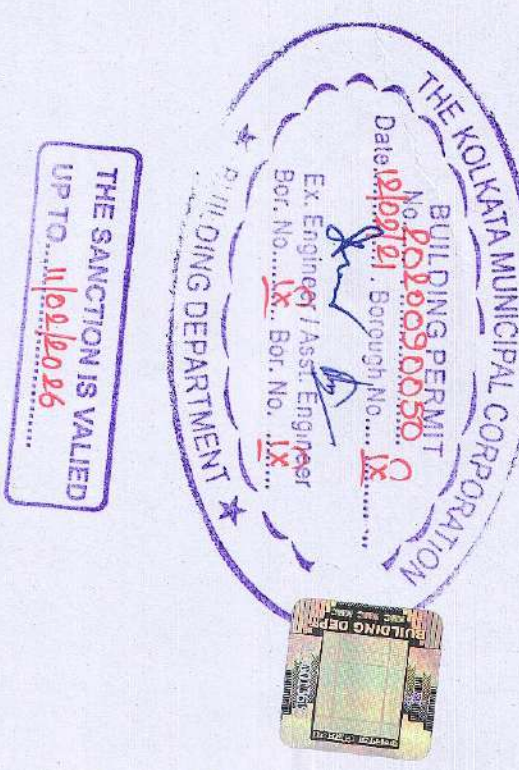 THE KOLKATA MUNICIPAL CORPORATION
BUILDING PERMIT
No. 2020090050
Date 12/02/21 . Borough No.... IX
Ex. Engineer / Asst. Engineer
Bor. No..... IX .. Bor. No. .... IX
★ BUILDING DEPARTMENT ★
BUILDING DEPT
THE SANCTION IS VALIED
UP TO..... 11/02/2026